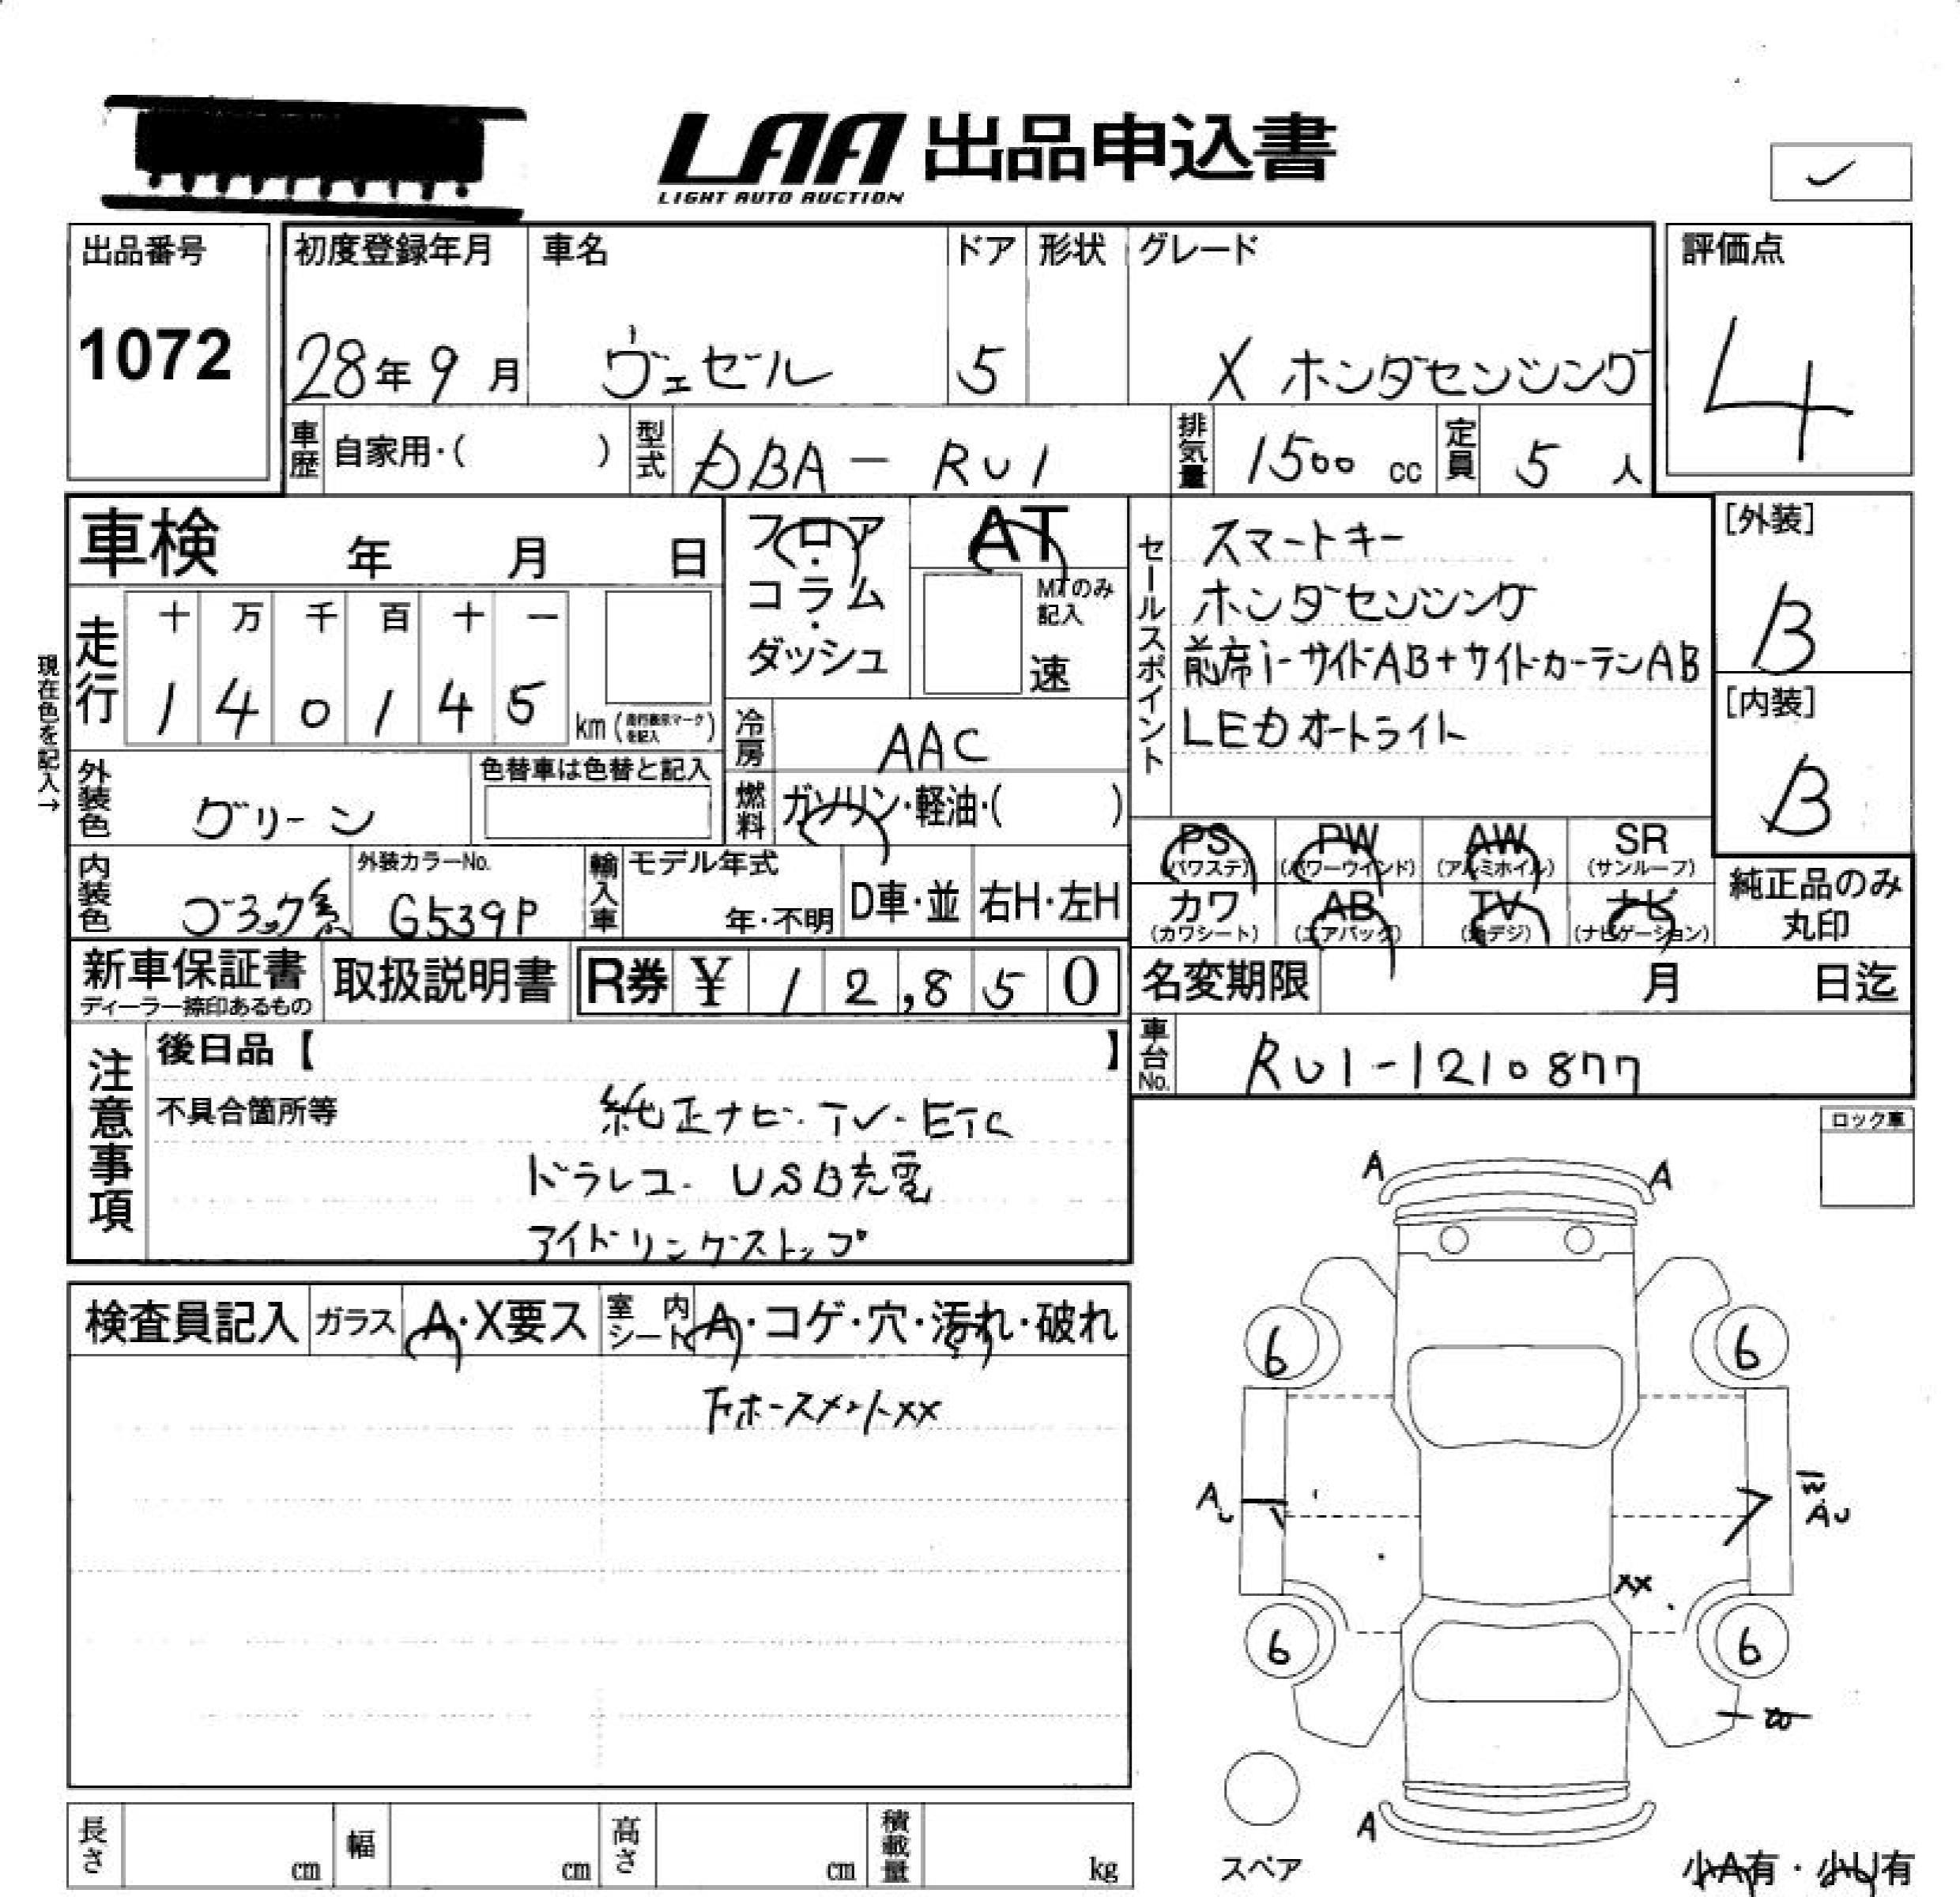 LAA 出品申込書
LIGHT AUTO AUCTION
出品番号
1072
初度登録年月 車名 ドア 形状 グレード
28年9月 ヴェゼル 5 X ホンダセンシング
評価点
4
車歴 自家用・( ) 型式 DBA-RU1 排気量 1500 cc 定員 5 人
車検 年 月 日
フロア・コラム・ダッシュ
AT
MTのみ記入
速
セールスポイント
スマートキー
ホンダセンシング
前席i-サイドAB+サイドカーテンAB
LEDオートライト
[外装]
B
[内装]
B
現在色を記入→
走行 十 万 千 百 十 一
1 4 0 1 4 5 km (走行表示マークを記入)
冷房 AAC
外装色 グリーン 色替車は色替と記入
燃料 ガソリン・軽油・( )
内装色 ブラック系 外装カラーNo. G539P 輸入車 モデル年式 年・不明 D車・並 右H・左H
PS (パワステ) PW (パワーウインド) AW (アルミホイル) SR (サンルーフ)
カワ (カワシート) AB (エアバック) TV (地デジ) ナビ (ナビゲーション)
純正品のみ丸印
新車保証書 ディーラー捺印あるもの 取扱説明書 R券 ¥ 12,850
名変期限 月 日迄
車台No. RU1-1210877
注意事項
後日品【 】
不具合箇所等
純正ナビ・TV・ETC
ドラレコ・USB充電
アイドリングストップ
ロック車
検査員記入 ガラス A・X要ス 室内シート A・コゲ・穴・汚れ・破れ
下ホースメントXX
A A
6 6
AU AU
XX
6 6
A
スペア
小A有・小U有
長さ cm 幅 cm 高さ cm 積載量 kg